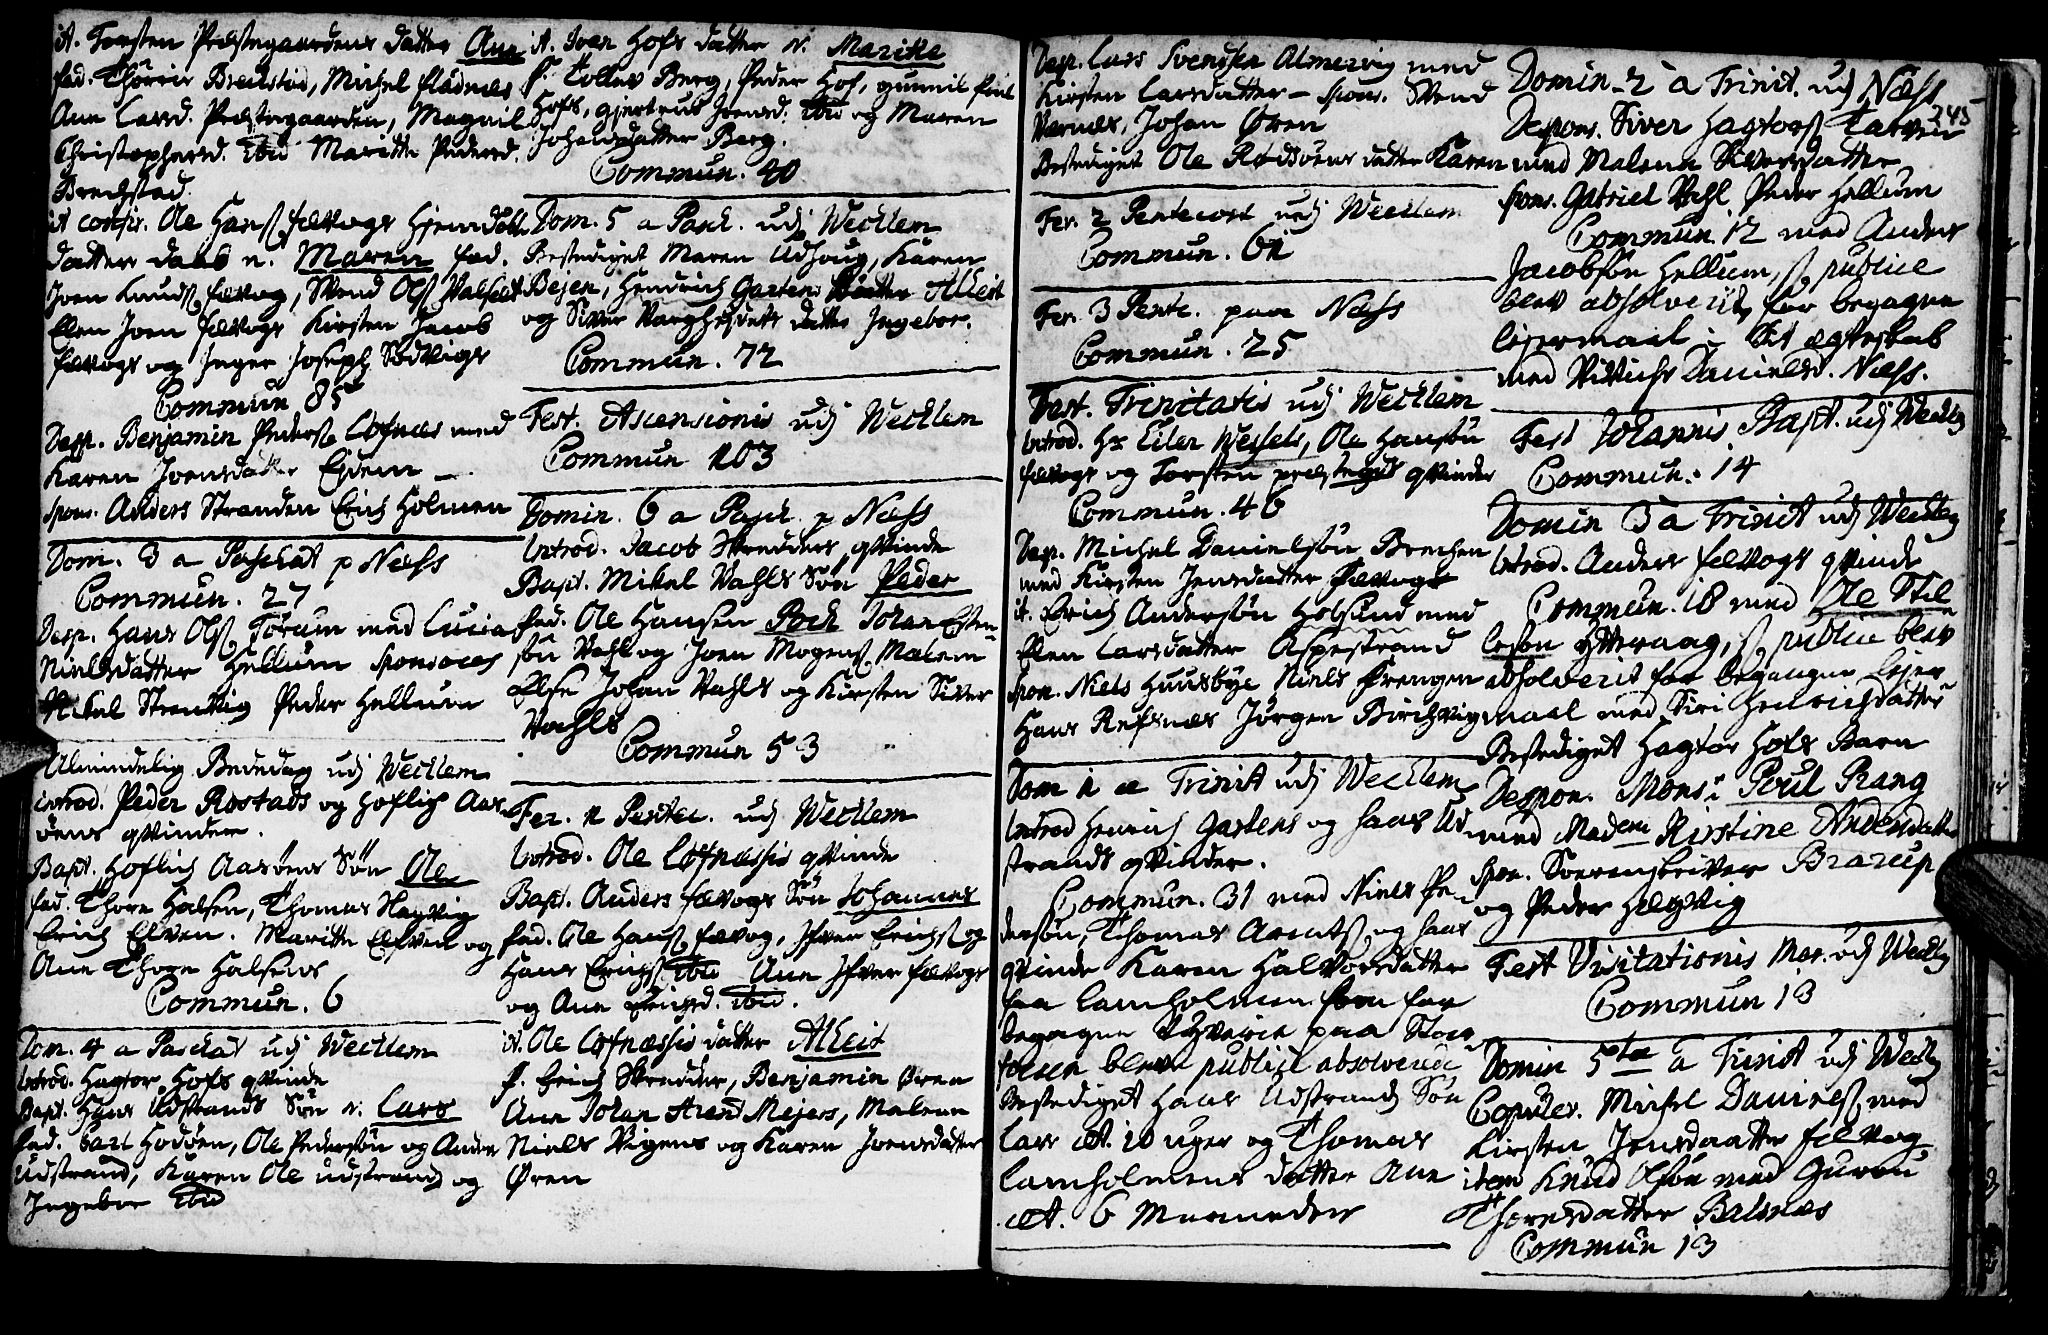 it. Torsten Præstegaardens datter Ane
fad. Thorrir Breitstad, Michel fladnes
Ane Larsd. Præstegaarden, Magnil
Christophersd. ibid Maritte Pedersd.
Bredstad
it confir. Ole Hanss felvogs hjemdøbte
datter daab n. Maren fad.
Joen Knuds felvog, Svend Ols Valseth
Elen Joen felvogs Kirsten Jacob
felvogs og Inger Joseph Sødvigs
Commun 85
Desp. Benjamin Peders Løfnæs med
Karen Joensdatter Eidem
spons. Anders Stranden Erich Holmen
Dom. 3 a Paschat p Næss
Commun. 27
Desp. Hans Ols Forum med Lucia
Nielsdatter Hellum sponsores
Mikel Strenvig Peder Hellum
Almindelig Bededag udj Wecklem
introd. Peder Rostads og Hoflich Aar
öens qvinder.
Bapt. Hoflich Aaröens Sön Ole
fad. Thore Halsen, Thomas Hegvig
Erich Elven. Maritte Elven og
Ane Thore Halsens
Commun. 6
Dom. 4 a Paschat udj Wecklem
introd. Hagtor Hofs qvinde
Bapt. Hans Udstrands Sön n. Lars
fad. Carl Hodöen, Ole Pedersön og Anders
Udstrand, Karen Ole udstrand og
Ingebor ibid
it. Iver Hofs datter n. Maritte
f. Tollev Berg, Peder Hof, gunnil Poul
Hofs, giertrud Joensd. ibid og Maren
Johansdatter Berg.
Commun. 40
Dom. 5 a Pasch. udj Wecklem
Bestediget Maren Udhoug, Karen
Bejen, Hendrich Gartens datter Alheit
og Siver datter Ingebor.
Commun. 72
Fest. Ascensionis udj Wecklem
Commun 103
Domin. 6 a Pasch. p Næss
introd. Jacob Skredders qvinde
Bapt. Mikel Vahls Sön Peder
fad. Ole Hansen Pock Johan Esten
sön Vahl og Joen Mogens, Malene
Else Johan Vahls og Kirsten Siver
Vahls
Commun 53
Fer. 1 Pentec. udj Wecklem
introd. Ole Løfnæssis qvinde
Bapt. Anders felvogs Sön Johannes
fad. Ole Hans felvog, Ifver Erichs og
Hans Erichs ibid Ane Ifver felvogs
og Ane Erichsd. ibid.
it. Ole Løfnæssis datter Alheit
f. Erich Skredder, Benjamin Øren
Ane Johan Arent Mejers, Malene
Niels Vigens og Karen Joensdatter
Øren
Desp. Lars Svendsen Almervig med
Kirsten Larsdatter - spons. Svend
Varnes, Johan Øren
Bestediget Ole Rødsöens datter Karen
Fer. 2 Pentecost udj Wecklem
Commun. 61
Fer. 3 Pente. paa Næss
Commun. 25
Fest. Trinitatis udj Wecklem
introd. Hr Eiler Wessels, Ole Hansön
felvogs og Torsten præstegds qvinder
Commun. 46
Desp. Michel Danielsön Brechen
med Kirsten Jensdatter felvogs
it. Erich Andersön Holsund med
Elen Larsdatter Aspestrand
spon. Niels Huusbye Niels Ørengen
Hans Refsnæs Jörgen Birchvig
Dom 1 a Trinit udj Wecklem
introd Henrich Gartens og Hans Ud
strands qvinder.
Commun. 31 med Niels Pe
dersön, Thomas Arents og hans
qvinde Karen Halvorsdatter
fra Lamholmen som for
begagne paa Stor
fosen blev publice absolverede
Bestediget Hans Udstrands Sön
Lars æt. 10 uger og Thomas
Lamholmens datter Ane
æt. 6 Maaneder
Domin. 2 a Trinit. udj Næss
243
Despons. Siver Hagtors Tarven
med Malene Siversdatter
spons. Gabriel Vahl Peder Hellum
Commun. 12 med Anders
Jacobsön Hellum, s publice
blev absolverit for begagne
leiermaal i Et ægteskab
med Danielsd. Næss.
Fest Johannis Bapt. udj Weckl
Commun. 14
Domin 3 a Trinit udj Weckl
introd. Anders felvogs qvinde
Commun. 18 med Ole Stil
lesön Ytteraag, s publice blev
absolverit for begangne leier
maal med Siri Henrichsdatter
Bestediget Hagtor Hofs Barn
Despon. Monsr Poul Rang
med Madem Kirstine Andersdatter
spon. Sorenskriver Brarup
og Peder Hegvig
Fest Visitationis Mar. udj Weckl
Commun 13
Domin 5ta a Trinit udj Weckl
Copuler. Michel Daniels med
Kirsten Jensdaatter felvog
item Knud Olsön med Guren
Thoresdatter Balsnæs
Commun 13